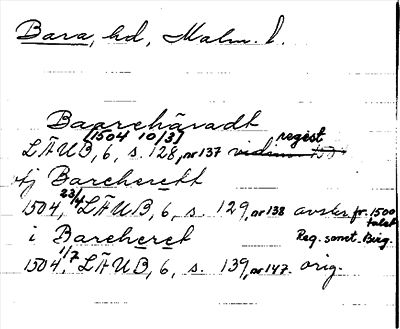 Bara, hd, Malm. l.
Baarehäradt
[1504 10/3]
LÄUB, 6, s. 128, nr 137 regest
aj Bareherett
1504, 23/4 LÄUB, 6, s. 129, nr 138 avskr. fr. 1500 talet
i Bareheret Reg. sanct. Birg.
1504, 1/7 LÄUB, 6, s. 139, nr 147. orig.